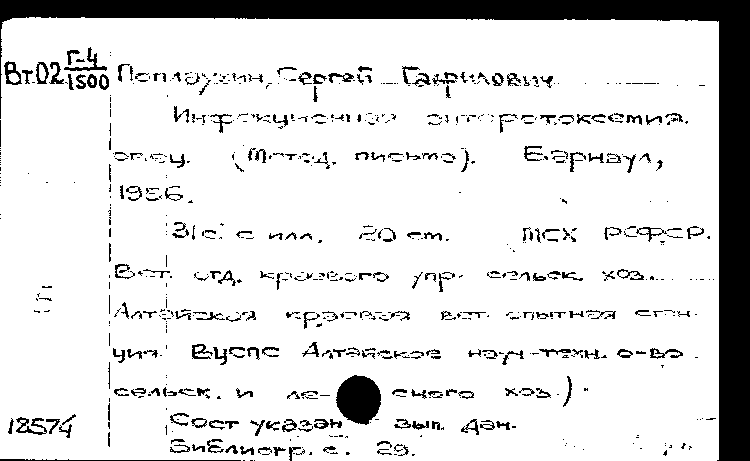 Вт.02 Г-4/1500 Поплаухин, Сергей Гаврилович
Инфекционная энтеротоксемия
овец. (Метод. письмо). Барнаул,
1956.
31с. с илл. 20 см. МСХ РСФСР.
Вет. отд. краевого упр. сельск. хоз.
Алтайская краевая вет. опытная стан-
ция. ВЦСПС Алтайское науч-техн. о-во
сельск. и ле- сного хоз.)
18574 Сост указан вып. дан.
Библиогр. с. 29.